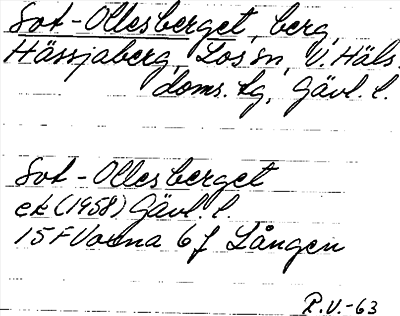 Sot-Ollesberget, berg,
Hässjaberg, Los sn, V. Häls.
doms. lg, Gävl. l.
Sot-Ollesberget
ek (1958) Gävl. l.
15F Voxna 6 f Lången
R.V.-63